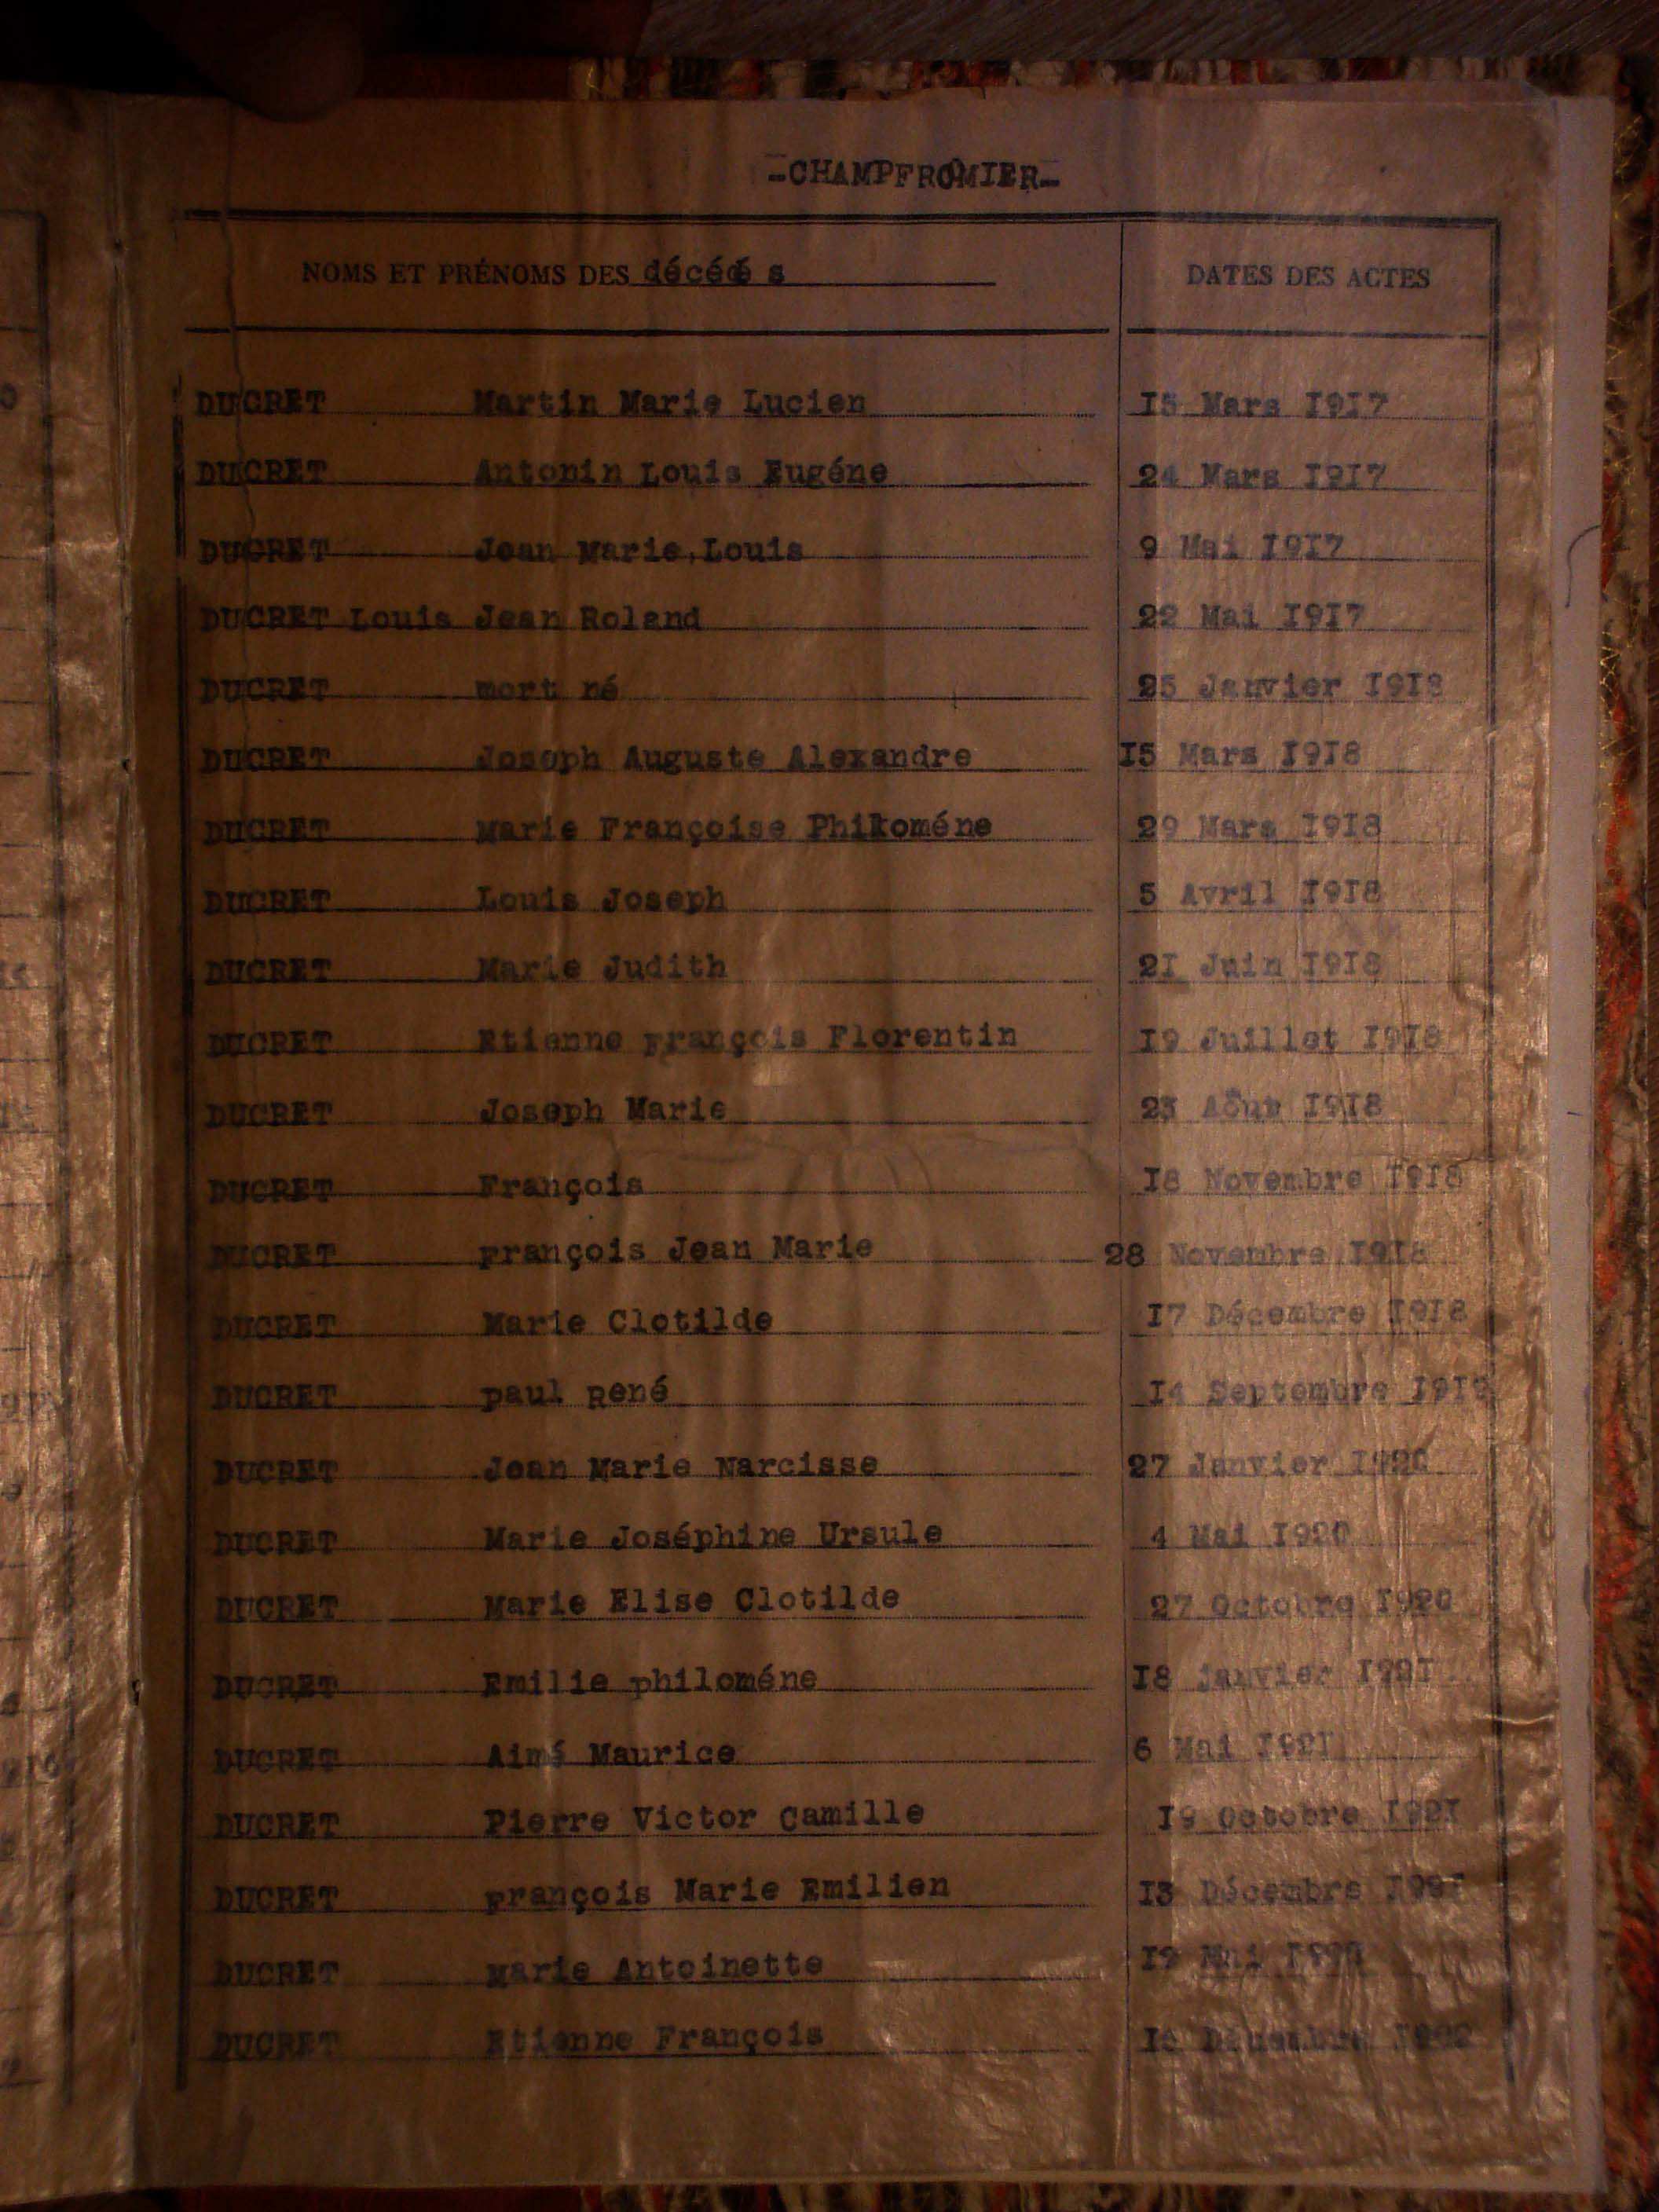 -CHAMPFROMIER-
NOMS ET PRÉNOMS DES décédés DATES DES ACTES
DUCRET Martin Marie Lucien 15 Mars 1917
DUCRET Antonin Louis Eugéne 24 Mars 1917
DUCRET Jean Marie,Louis 9 Mai 1917
DUCRET Louis Jean Roland 22 Mai 1917
DUCRET mort né 25 Janvier 1918
DUCRET Joseph Auguste Alexandre 15 Mars 1918
DUCRET Marie Françoise Philoméne 29 Mars 1918
DUCRET Louis Joseph 5 Avril 1918
DUCRET Marie Judith 21 Juin 1918
DUCRET Etienne François Florentin 19 Juillet 1918
DUCRET Joseph Marie 23 Août 1918
DUCRET François 18 Novembre 1918
DUCRET François Jean Marie 28 Novembre 1918
DUCRET Marie Clotilde 17 Décembre 1918
DUCRET Paul René 14 Septembre
DUCRET Jean Marie Narcisse 27 Janvier 1920
DUCRET Marie Joséphine Ursule 4 Mai 1920
DUCRET Marie Elise Clotilde 27 Octobre 1920
DUCRET Emilie philoméne 18 janvier 1921
DUCRET Aimé Maurice 6 Mai 1921
DUCRET Pierre Victor Camille 19 Octobre 1921
DUCRET François Marie Emilien 13 Décembre 1921
DUCRET Marie Antoinette 19 Mai
DUCRET Etienne François Décembre 1922